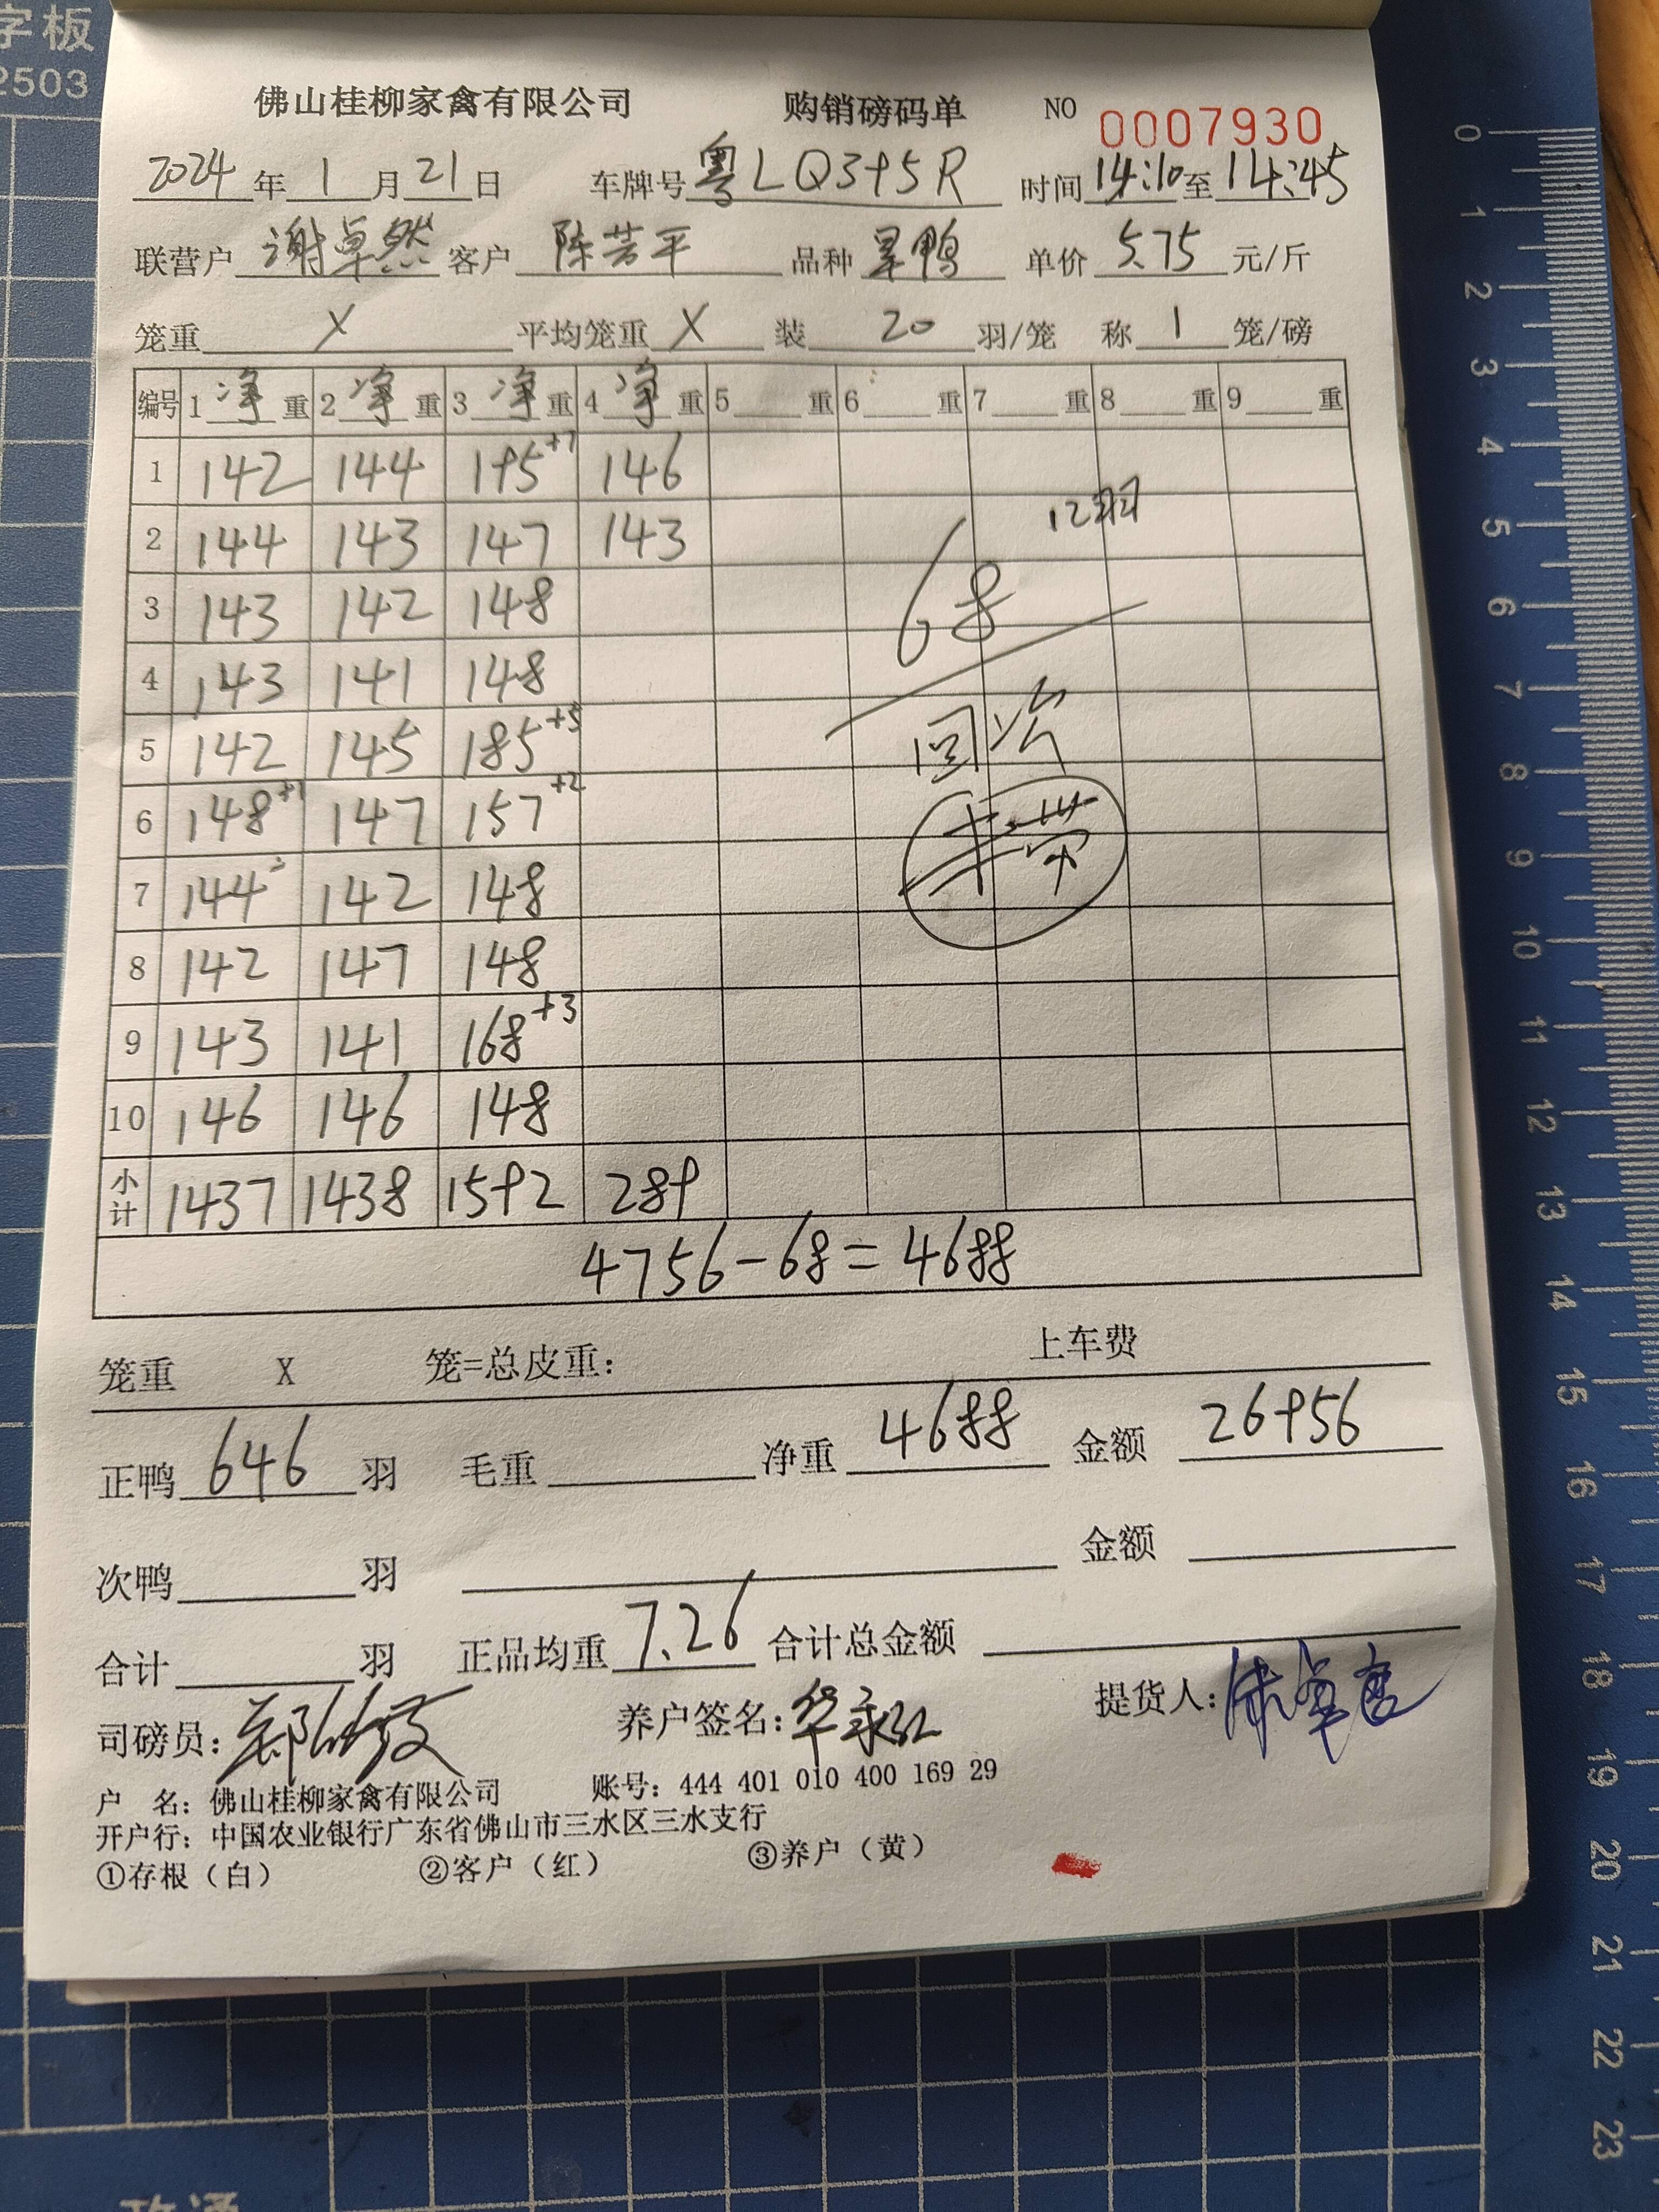 字板
2503
佛山桂柳家禽有限公司 购销磅码单 NO 0007930
2024年1月21日 车牌号 粤LQ395R 时间 14:10至14:45
联营户 谢卓然 客户 陈芳平 品种 旱鸭 单价 5.75 元/斤
笼重 X 平均笼重 X 装 20 羽/笼 称 1 笼/磅
编号 1 净重 2 净重 3 净重 4 净重 5 重 6 重 7 重 8 重 9 重
1 142 144 195+7 146
2 144 143 147 143
12羽
3 143 142 148
68
4 143 141 148
5 142 145 185+5
回次
6 148+1 147 157+2
7 144 142 148
8 142 147 148
9 143 141 168+3
10 146 146 148
小计 1437 1438 1592 289
4756-68=4688
笼重 X 笼=总皮重: 上车费
正鸭 646 羽 毛重 净重 4688 金额 26956
次鸭 羽 金额
合计 羽 正品均重 7.26 合计总金额
司磅员: 养户签名: 提货人:
户 名: 佛山桂柳家禽有限公司 账号: 444 401 010 400 169 29
开户行: 中国农业银行广东省佛山市三水区三水支行
①存根（白） ②客户（红） ③养户（黄）
0
1
2
3
4
5
6
7
8
9
10
11
12
13
14
15
16
17
18
19
20
21
22
23